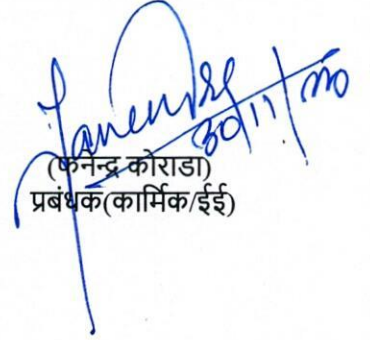 30/11/2020
(फनेन्द्र कोराडा)
प्रबंधक(कार्मिक/ईई)